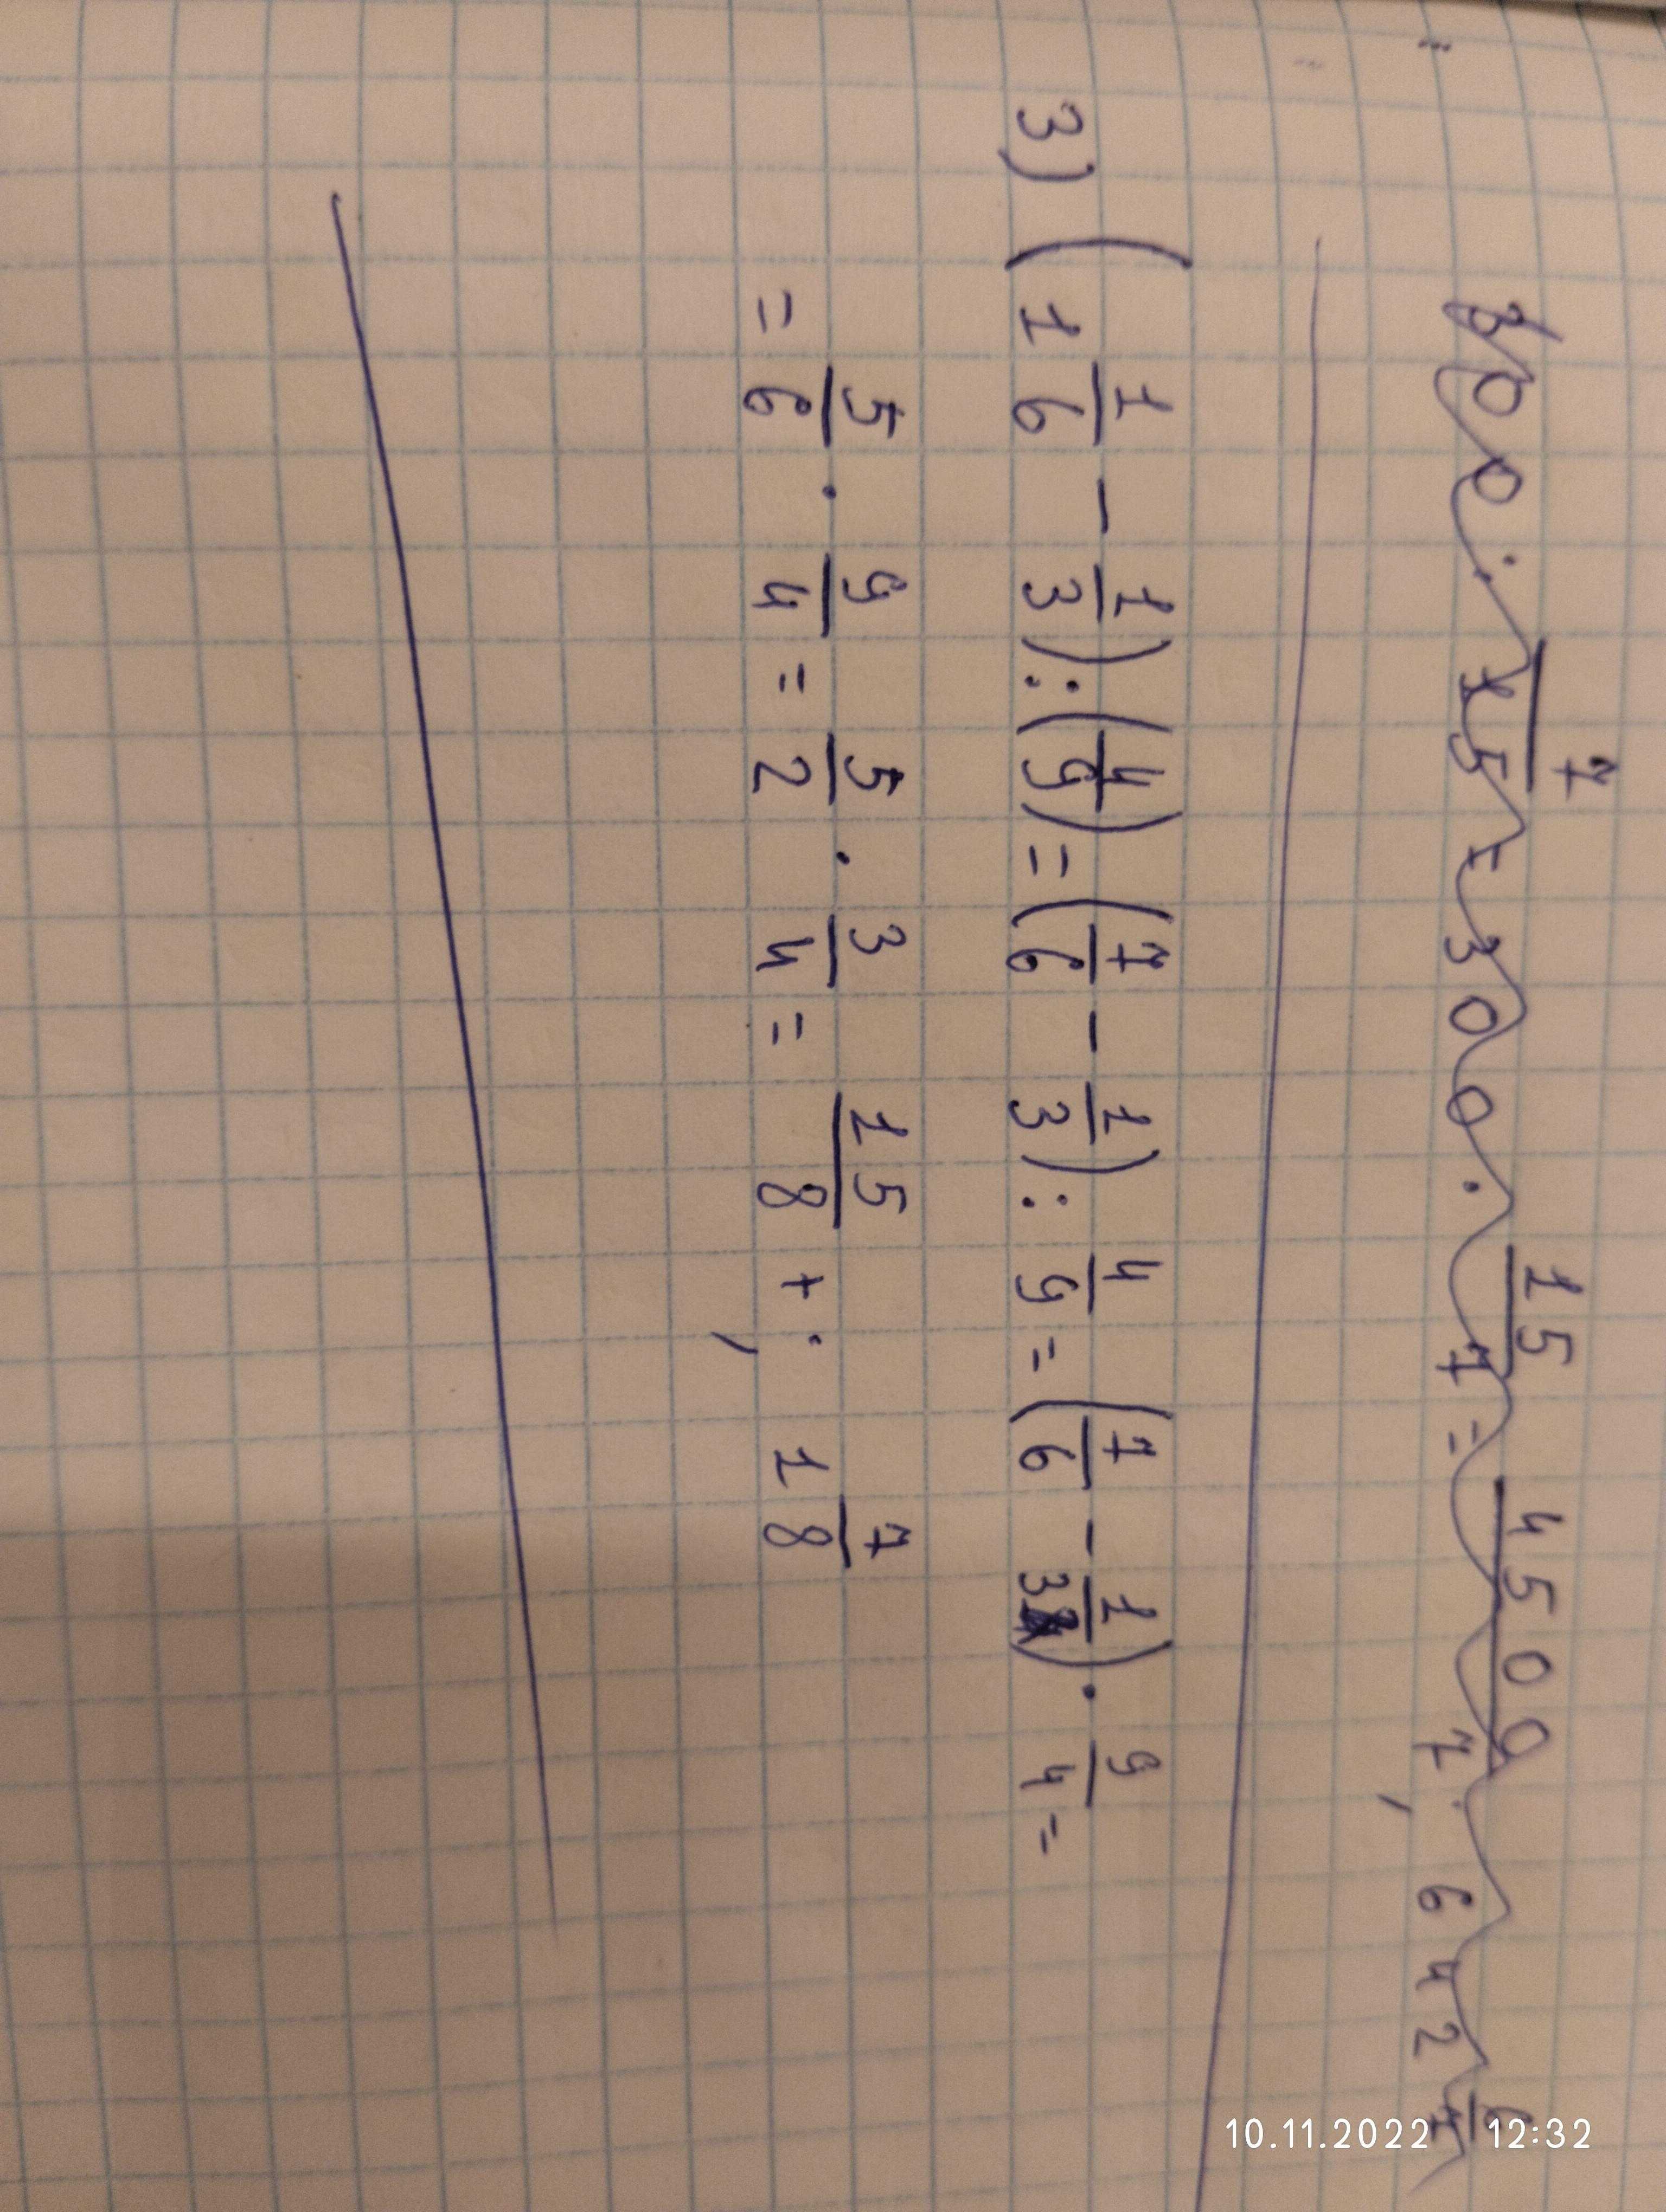 300 : 7/15 = 300 · 15/7 = 4500/7 ; 642 6/7
3) (1 1/6 - 1/3) : (4/9) = (7/6 - 1/3) : 4/9 = (7/6 - 1/3) · 9/4 =
= 5/6 · 9/4 = 5/2 · 3/4 = 15/8 + ; 1 7/8
10.11.2022 12:32